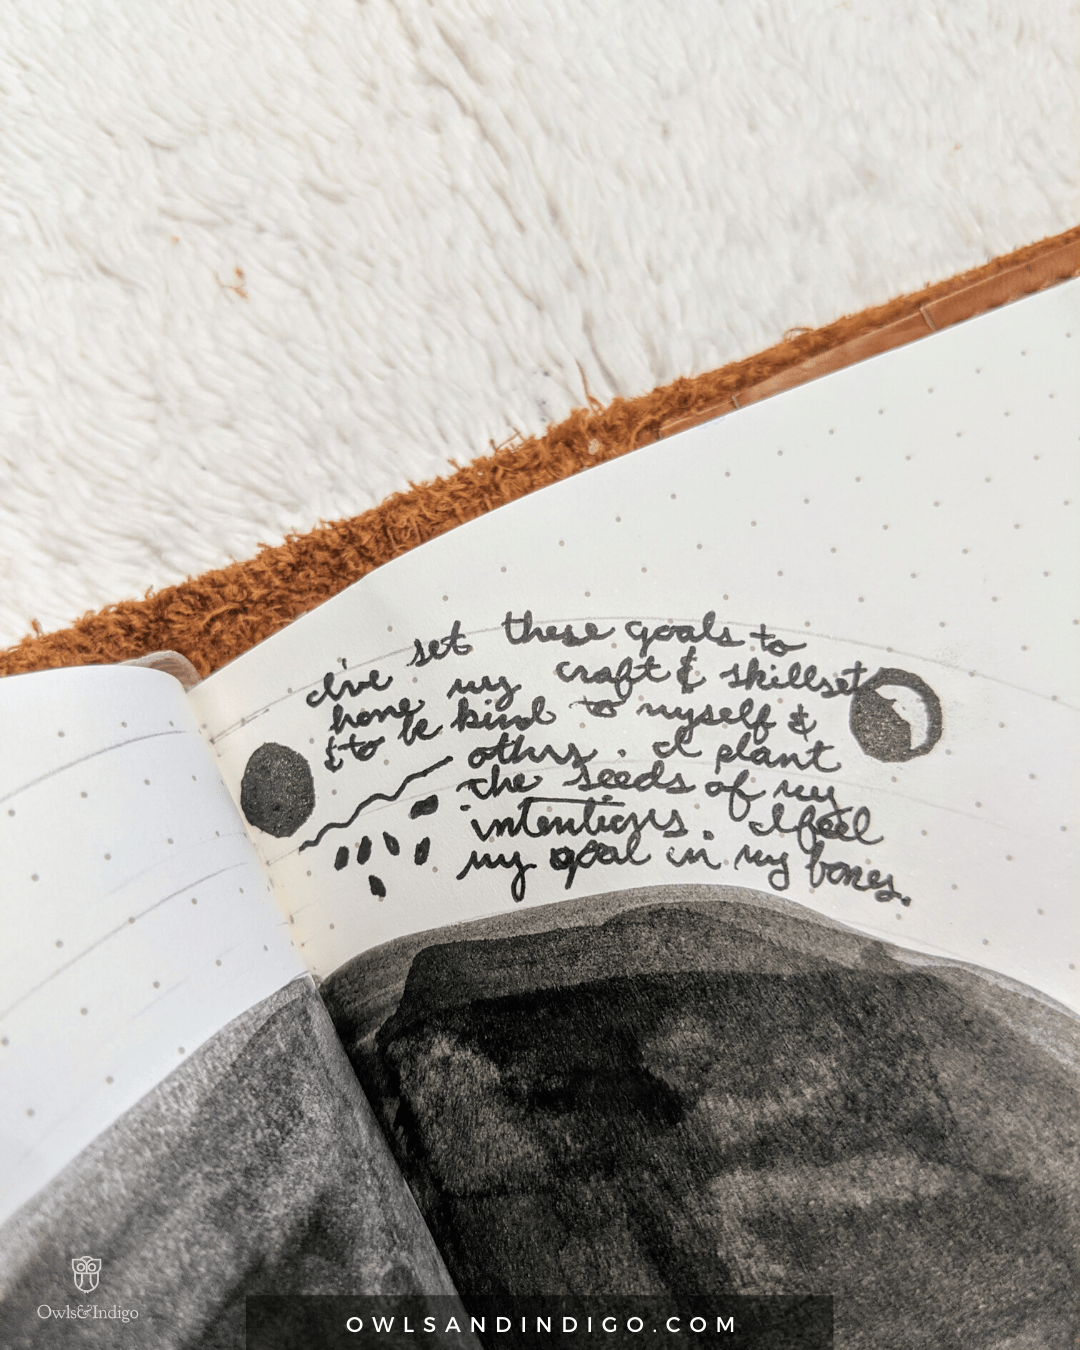 I've set these goals to
hone my craft & skillset
& to be kind to myself &
others. I plant
the seeds of my
intentions. I feel
my goal in my bones.
Owls&Indigo
OWLSANDINDIGO.COM